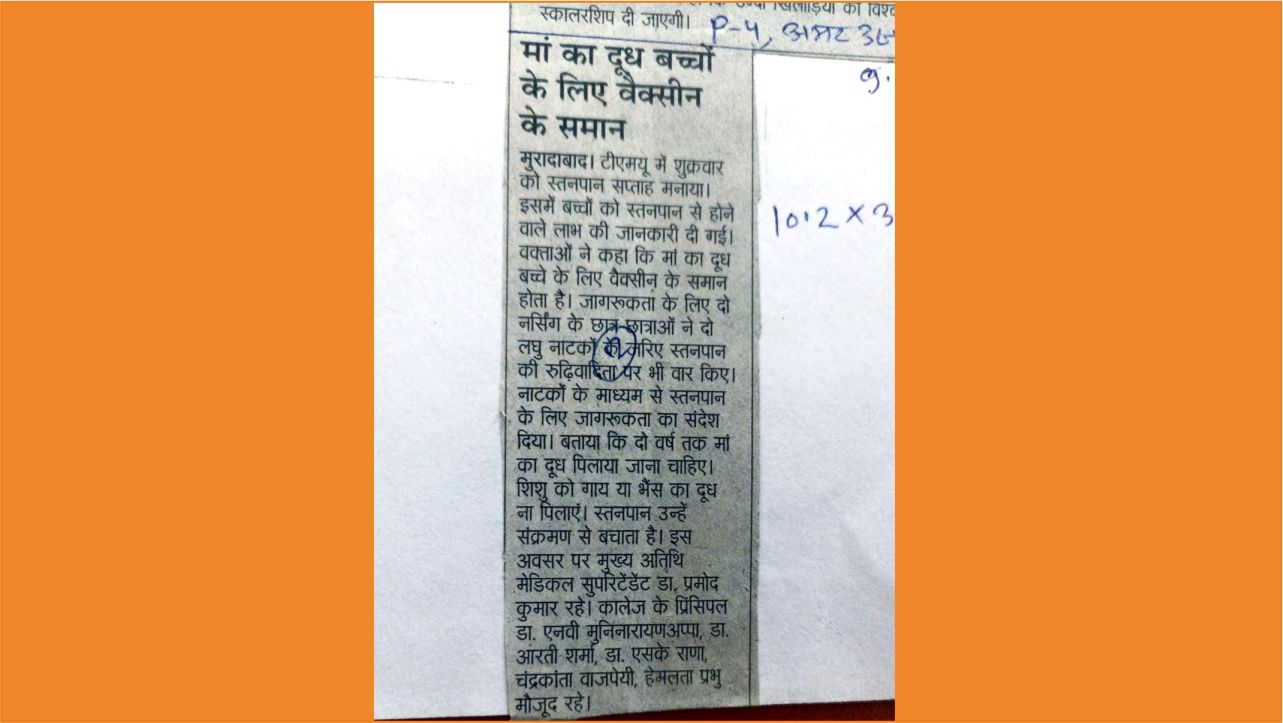 स्कालरशिप दी जाएगी।
P-4, अमर उजा
9.
मां का दूध बच्चों
के लिए वैक्सीन
के समान
10.2 x 3
मुरादाबाद। टीएमयू में शुक्रवार
को स्तनपान सप्ताह मनाया।
इसमें बच्चों को स्तनपान से होने
वाले लाभ की जानकारी दी गई।
वक्ताओं ने कहा कि मां का दूध
बच्चे के लिए वैक्सीन के समान
होता है। जागरूकता के लिए दो
नर्सिंग के छात्र-छात्राओं ने दो
लघु नाटकों के जरिए स्तनपान
की रुढ़िवादिता पर भी वार किए।
नाटकों के माध्यम से स्तनपान
के लिए जागरूकता का संदेश
दिया। बताया कि दो वर्ष तक मां
का दूध पिलाया जाना चाहिए।
शिशु को गाय या भैंस का दूध
ना पिलाएं। स्तनपान उन्हें
संक्रमण से बचाता है। इस
अवसर पर मुख्य अतिथि
मेडिकल सुपरिटेंडेंट डा. प्रमोद
कुमार रहे। कालेज के प्रिंसिपल
डा. एनवी मुनिनारायणअप्पा, डा.
आरती शर्मा, डा. एसके राणा,
चंद्रकांता वाजपेयी, हेमलता प्रभु
मौजूद रहे।